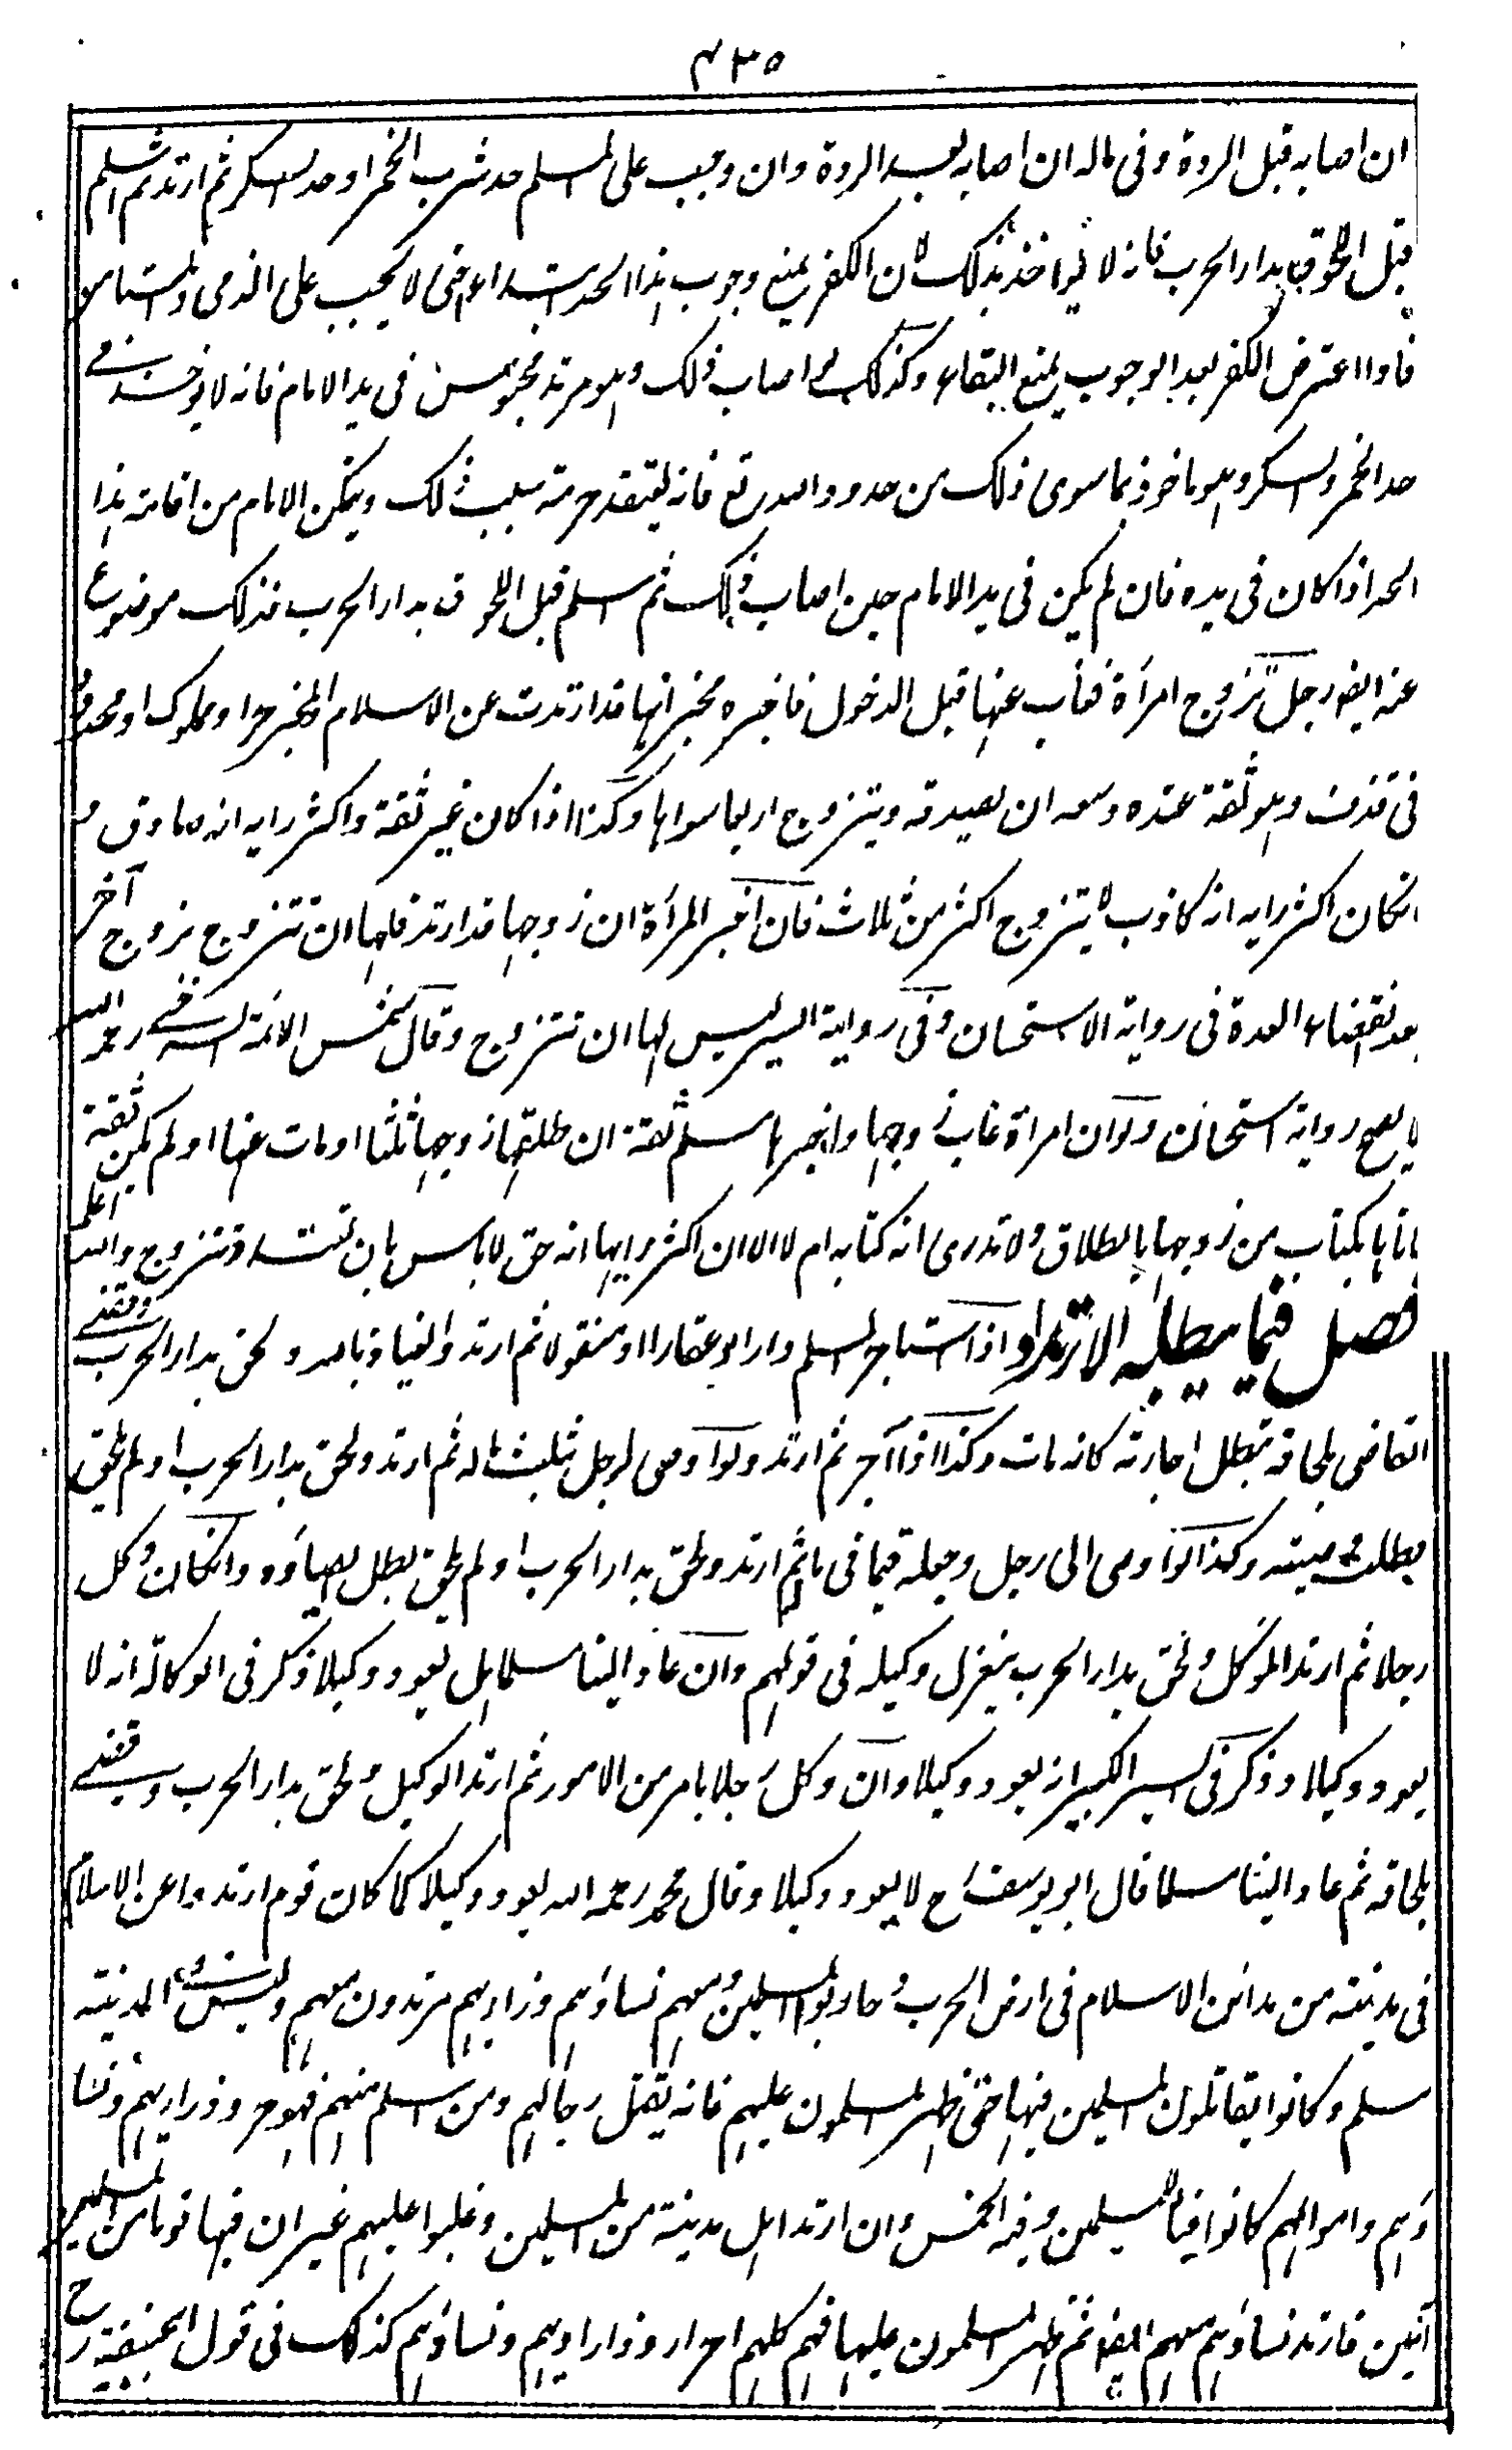 ٤٣٥
ان اصابه قبل الردة وفى ماله ان اصابه بعد الردة وان وجب على المسلم حد شرب الخمر او حد السكر ثم ارتد ثم اسلم
قبل اللحوق بدار الحرب فانه لا يؤاخذ بذلك لان الكفر يمنع وجوب هذا الحد ابتداء حتى لا يجب على الذمى والمستامن
فاذا اعترض الكفر بعد الوجوب يمنع البقاء وكذلك لو اصاب ذلك وهو مرتد محبوس فى يد الامام فانه لا يؤخذ فى
حد الخمر والسكر وهو ماخوذ بما سوى ذلك من حدود الله تع فانه يعتقد حرمة سبب ذلك ويتمكن الامام من اقامة هذا
الحد اذا كان فى يده فان لم يكن فى يد الامام حين اصاب ذلك ثم اسلم قبل اللحوق بدار الحرب فذلك موضوع
عنه ايضا رجل تزوج امرأة فغاب عنها قبل الدخول فاخبره مخبر انها قد ارتدت عن الاسلام والمخبر حر او مملوك او محدود
فى قذف وهو ثقة عنده وسعه ان يصدقه ويتزوج اربعا سواها وكذا اذا كان غير ثقة واكثر رايه انه صادق و
انكان اكثر رايه انه كاذب لا يتزوج اكثر من ثلاث فان اخبر المرأة ان زوجها قد ارتد فلها ان تتزوج بزوج آخر
بعد انقضاء العدة فى رواية الاستحسان وفى رواية السير ليس لها ان تتزوج وقال شمس الائمة السرخسى رحمه الله
الاصح رواية الاستحسان ولو ان امرأة غاب زوجها واخبرها مسلم ثقة ان طلقها زوجها ثلثا او مات عنها او لم يكن ثقة
اتاها بكتاب من زوجها بالطلاق ولا تدرى انه كتابه ام لا الا ان اكثر رايها انه حق لا باس بان تعتد وتتزوج والله اعلم
فصل فيما يبطله الارتداد اذا استاجر المسلم دارا او عقارا او منقولا ثم ارتد والعياذ بالله ولحق بدار الحرب وقضى
القاضى بلحاقه تبطل اجارته كانه مات وكذا اذا آجر ثم ارتد ولو اوصى لرجل بثلث ماله ثم ارتد ولحق بدار الحرب او لم يلحق
بطلت وصيته وكذا لو اوصى الى رجل وجعله قيما فى ماله ثم ارتد ولحق بدار الحرب او لم يلحق بطل ايصاؤه وانكان وكل
رجلا ثم ارتد الموكل ولحق بدار الحرب ينعزل وكيله فى قولهم وان عاد الينا مسلما هل يعود وكيلا ذكر فى الوكالة انه لا
يعود وكيلا وذكر فى السير الكبير انه يعود وكيلا وان وكل رجلا بامر من الامور ثم ارتد الوكيل ولحق بدار الحرب وقضى
بلحاقه ثم عاد الينا مسلما قال ابو يوسف رح لا يعود وكيلا وقال محمد رحمه الله يعود وكيلا كما كان قوم ارتدوا عن الاسلام
فى مدينة من مدائن الاسلام فى ارض الحرب وحاربوا المسلمين ومعهم نساؤهم وذراريهم مرتدون معهم وليس فى المدينة
مسلم وكانوا يقاتلون المسلمين فيها حتى ظهر المسلمون عليهم فانه يقتل رجالهم ومن اسلم منهم فهو حر وذراريهم ونسا
ؤهم واموالهم كانوا فيئا للمسلمين وفيه الخمس وان ارتد اهل مدينة من المسلمين وغلبوا عليهم غير ان فيها قوما من المسلمين
آمنين فارتد نساؤهم معهم ايضا ثم ظهر المسلمون عليها فهم كلهم احرار وذراريهم ونساؤهم كذلك فى قول ابيحنيفة رح